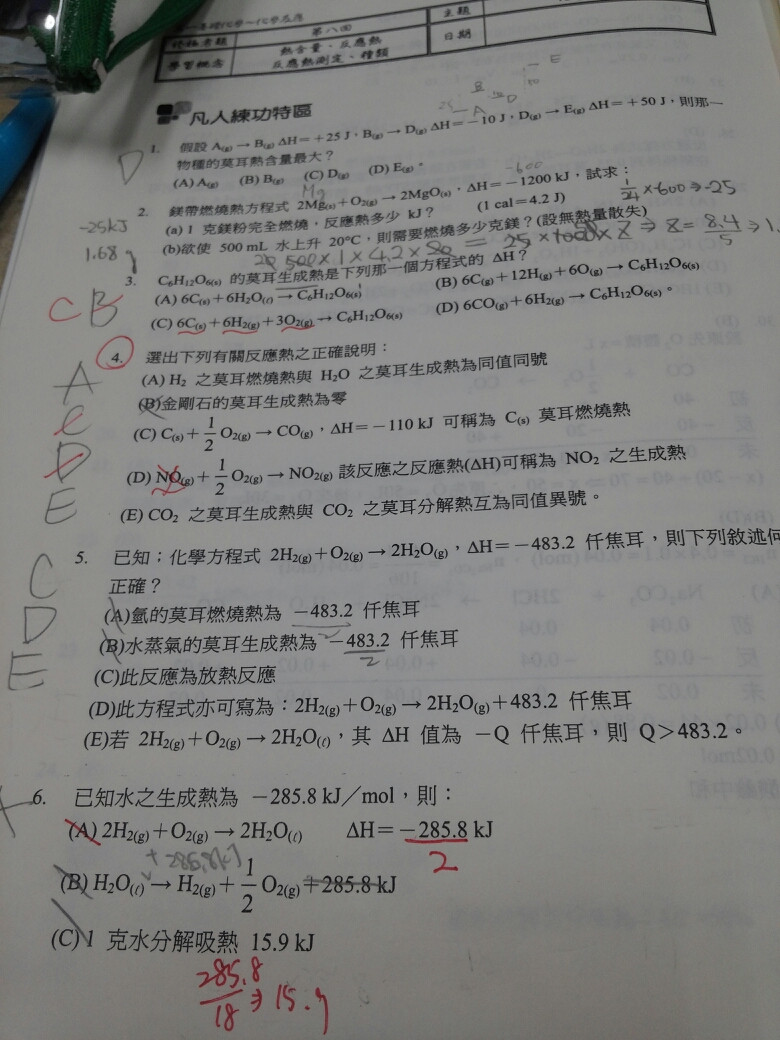 第八回
主題
熱含量、反應熱
學習概念
反應熱測定、種類
日期
凡人練功特區
D
1. 假設 A(g) → B(g) ΔH=+25 J,B(g) → D(g) ΔH=-10 J,D(g) → E(g) ΔH=+50 J,則那一
物種的莫耳熱含量最大?
(A) A(g) (B) B(g) (C) D(g) (D) E(g)。
-600
2. 鎂帶燃燒熱方程式 2Mg(s)+O2(g) → 2MgO(s),ΔH=-1200 kJ,試求:
1/24 ×600 ⇒ -25
-25kJ
(a) 1 克鎂粉完全燃燒,反應熱多少 kJ? (1 cal=4.2 J)
1.68g
(b)欲使 500 mL 水上升 20°C,則需要燃燒多少克鎂?(設無熱量散失)
3. C6H12O6(s) 的莫耳生成熱是下列那一個方程式的 ΔH?
C B
(A) 6C(s)+6H2O(ℓ) → C6H12O6(s) (B) 6C(g)+12H(g)+6O(g) → C6H12O6(s)
(C) 6C(s)+6H2(g)+3O2(g) → C6H12O6(s) (D) 6CO(g)+6H2(g) → C6H12O6(s)。
4. 選出下列有關反應熱之正確說明:
A
(A) H2 之莫耳燃燒熱與 H2O 之莫耳生成熱為同值同號
(B)金剛石的莫耳生成熱為零
C
(C) C(s)+1/2 O2(g) → CO(g),ΔH=-110 kJ 可稱為 C(s) 莫耳燃燒熱
D
(D) NO(g)+1/2 O2(g) → NO2(g) 該反應之反應熱(ΔH)可稱為 NO2 之生成熱
E
(E) CO2 之莫耳生成熱與 CO2 之莫耳分解熱互為同值異號。
C
5. 已知:化學方程式 2H2(g)+O2(g) → 2H2O(g),ΔH=-483.2 仟焦耳,則下列敘述何
正確?
D
(A)氫的莫耳燃燒熱為 -483.2 仟焦耳
(B)水蒸氣的莫耳生成熱為 -483.2 仟焦耳
2
E
(C)此反應為放熱反應
(D)此方程式亦可寫為:2H2(g)+O2(g) → 2H2O(g)+483.2 仟焦耳
(E)若 2H2(g)+O2(g) → 2H2O(ℓ),其 ΔH 值為 -Q 仟焦耳,則 Q>483.2。
6. 已知水之生成熱為 -285.8 kJ/mol,則:
(A) 2H2(g)+O2(g) → 2H2O(ℓ) ΔH=-285.8 kJ
2
+285.8kJ
(B) H2O(ℓ) → H2(g)+1/2 O2(g)+285.8 kJ
(C) 1 克水分解吸熱 15.9 kJ
285.8/18 ⇒ 15.9